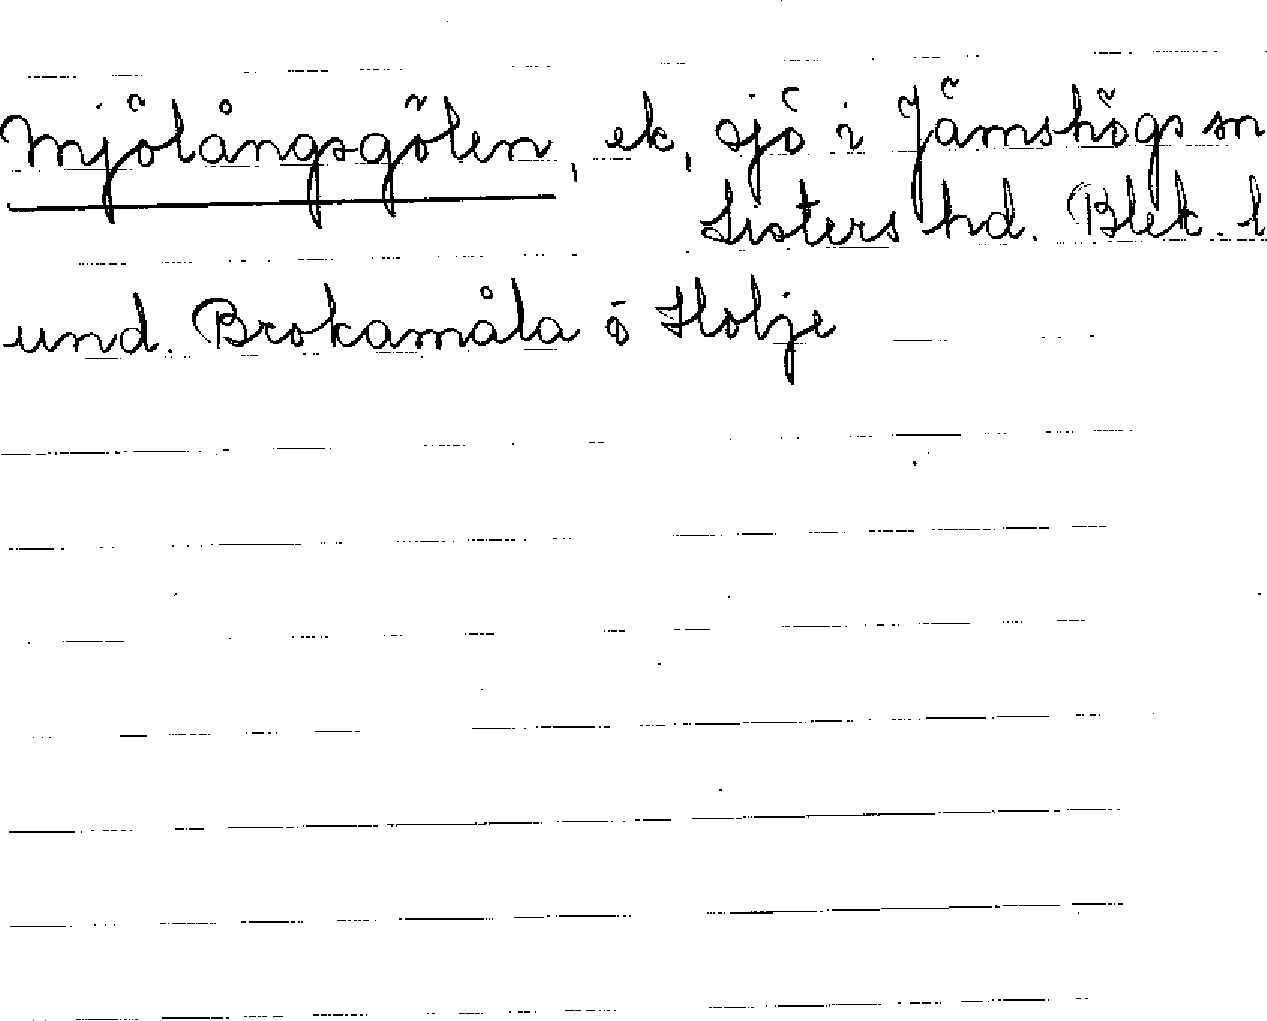 Mjölångsgölen, ek, sjö i Jämshögs sn
Listers hd. Blek. l
und. Brokamåla ö Holje